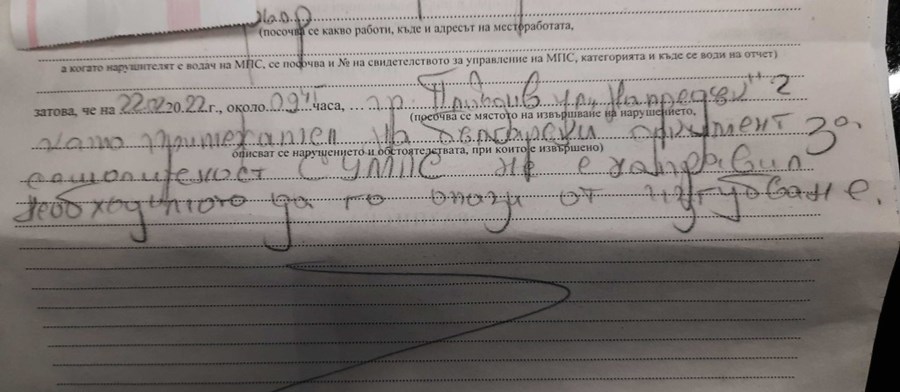 (посочва се какво работи, къде и адресът на месторабoтата,
а когато нарушителят е водач на МПС, се посочва и № на свидетелството за управление на МПС, категорията и къде се води на отчет)
затова, че на 22.02.2022.г., около 09 часа, ... гр. Пловдив ул. "Напредък" 2
(посочва се мястото на извършване на нарушението,
като притежател на български документ за
описват се нарушението и обстоятелствата, при които е извършено)
самоличност СУМПС не е направил
необходимото да го опази от изгубване.